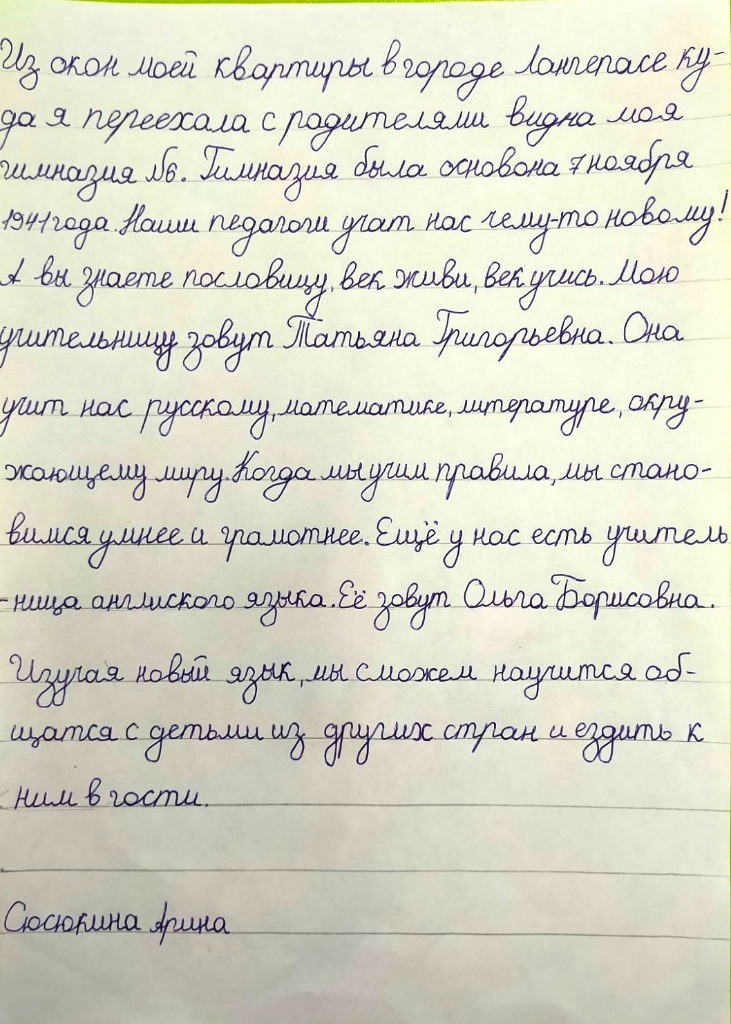 Из окон моей квартиры в городе Лангепасе ку-
да я переехала с родителями видна моя
гимназия №6. Гимназия была основона 7 ноября
1941 года. Наши педагоги учат нас чему-то новому!
А вы знаете пословицу, век живи, век учись. Мою
учительницу зовут Татьяна Григорьевна. Она
учит нас русскому, математике, литературе, окру-
жающему миру. Когда мы учим правила, мы стано-
вимся умнее и грамотнее. Ещё у нас есть учитель
-ница англиского языка. Её зовут Ольга Борисовна.
Изучая новый язык, мы сможем научится об-
щатся с детьми из других стран и ездить к
ним в гости.
Сюсюкина Арина